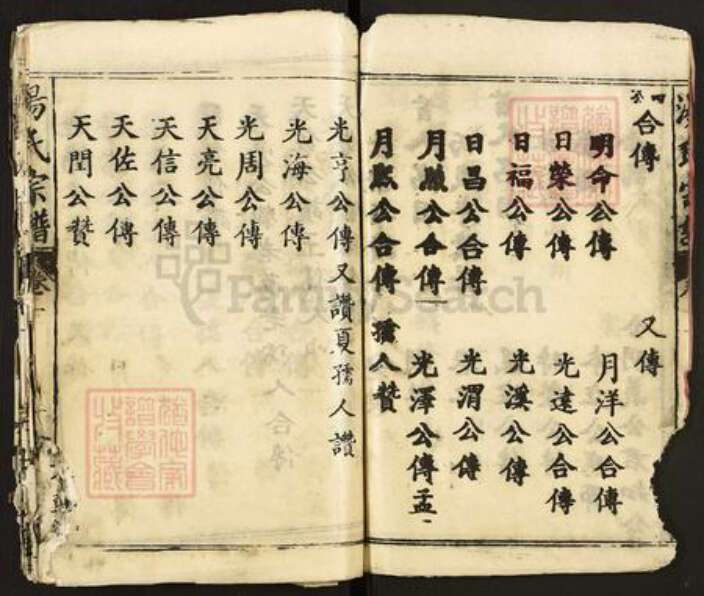 合傳 又傳
明命公傳 月洋公合傳
日榮公傳 光遠公合傳
日福公傳 光溪公傳
日昌公合傳 光渭公傳
月照公合傳 光澤公傳孟
月熙公合傳 孺人贊
光亨公傳又讚夏孺人讚
光海公傳
光周公傳
天亮公傳
天信公傳
天佐公傳
天閏公贊
楊氏宗譜
FamilySearch